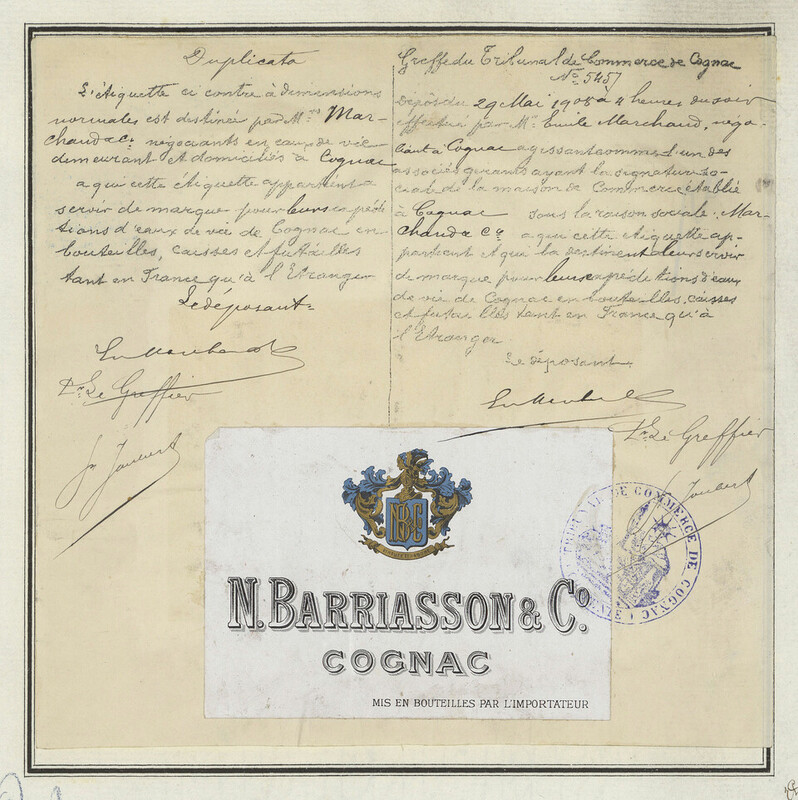 Duplicata
L'étiquette ci contre à dimensions
normales est destinée par M.rs Mar-
chand & Cie négociants en eaux de vie
demeurant et domiciliés à Cognac
a qui cette étiquette appartient a
servir de marque pour leurs expédi-
tions d'eaux de vie de Cognac en
bouteilles, caisses et futailles
tant en France qu'à l'Etranger
Le déposant
Em Marchand
Pr Le Greffier
Joubert
Greffe du Tribunal de Commerce de Cognac
No 5457
Dépôt du 29 Mai 1908 à 4 heures du soir
effectué par Mr Emile Marchand, négo-
ciant à Cognac agissant comme l'un des
associés gérants ayant la signature so-
ciale de la maison de Commerce établie
à Cognac sous la raison sociale. Mar-
chand & Co a qui cette étiquette ap-
partient et qui la destinent leur servir
de marque pour leurs expéditions d'eaux
de vie de Cognac en bouteilles, caisses
et futailles tant en France qu'à
l'Etranger
Le déposant
Pr Le Greffier
Joubert
NBC
N. BARRIASSON & Co.
COGNAC
MIS EN BOUTEILLES PAR L'IMPORTATEUR
TRIBUNAL DE COMMERCE DE COGNAC